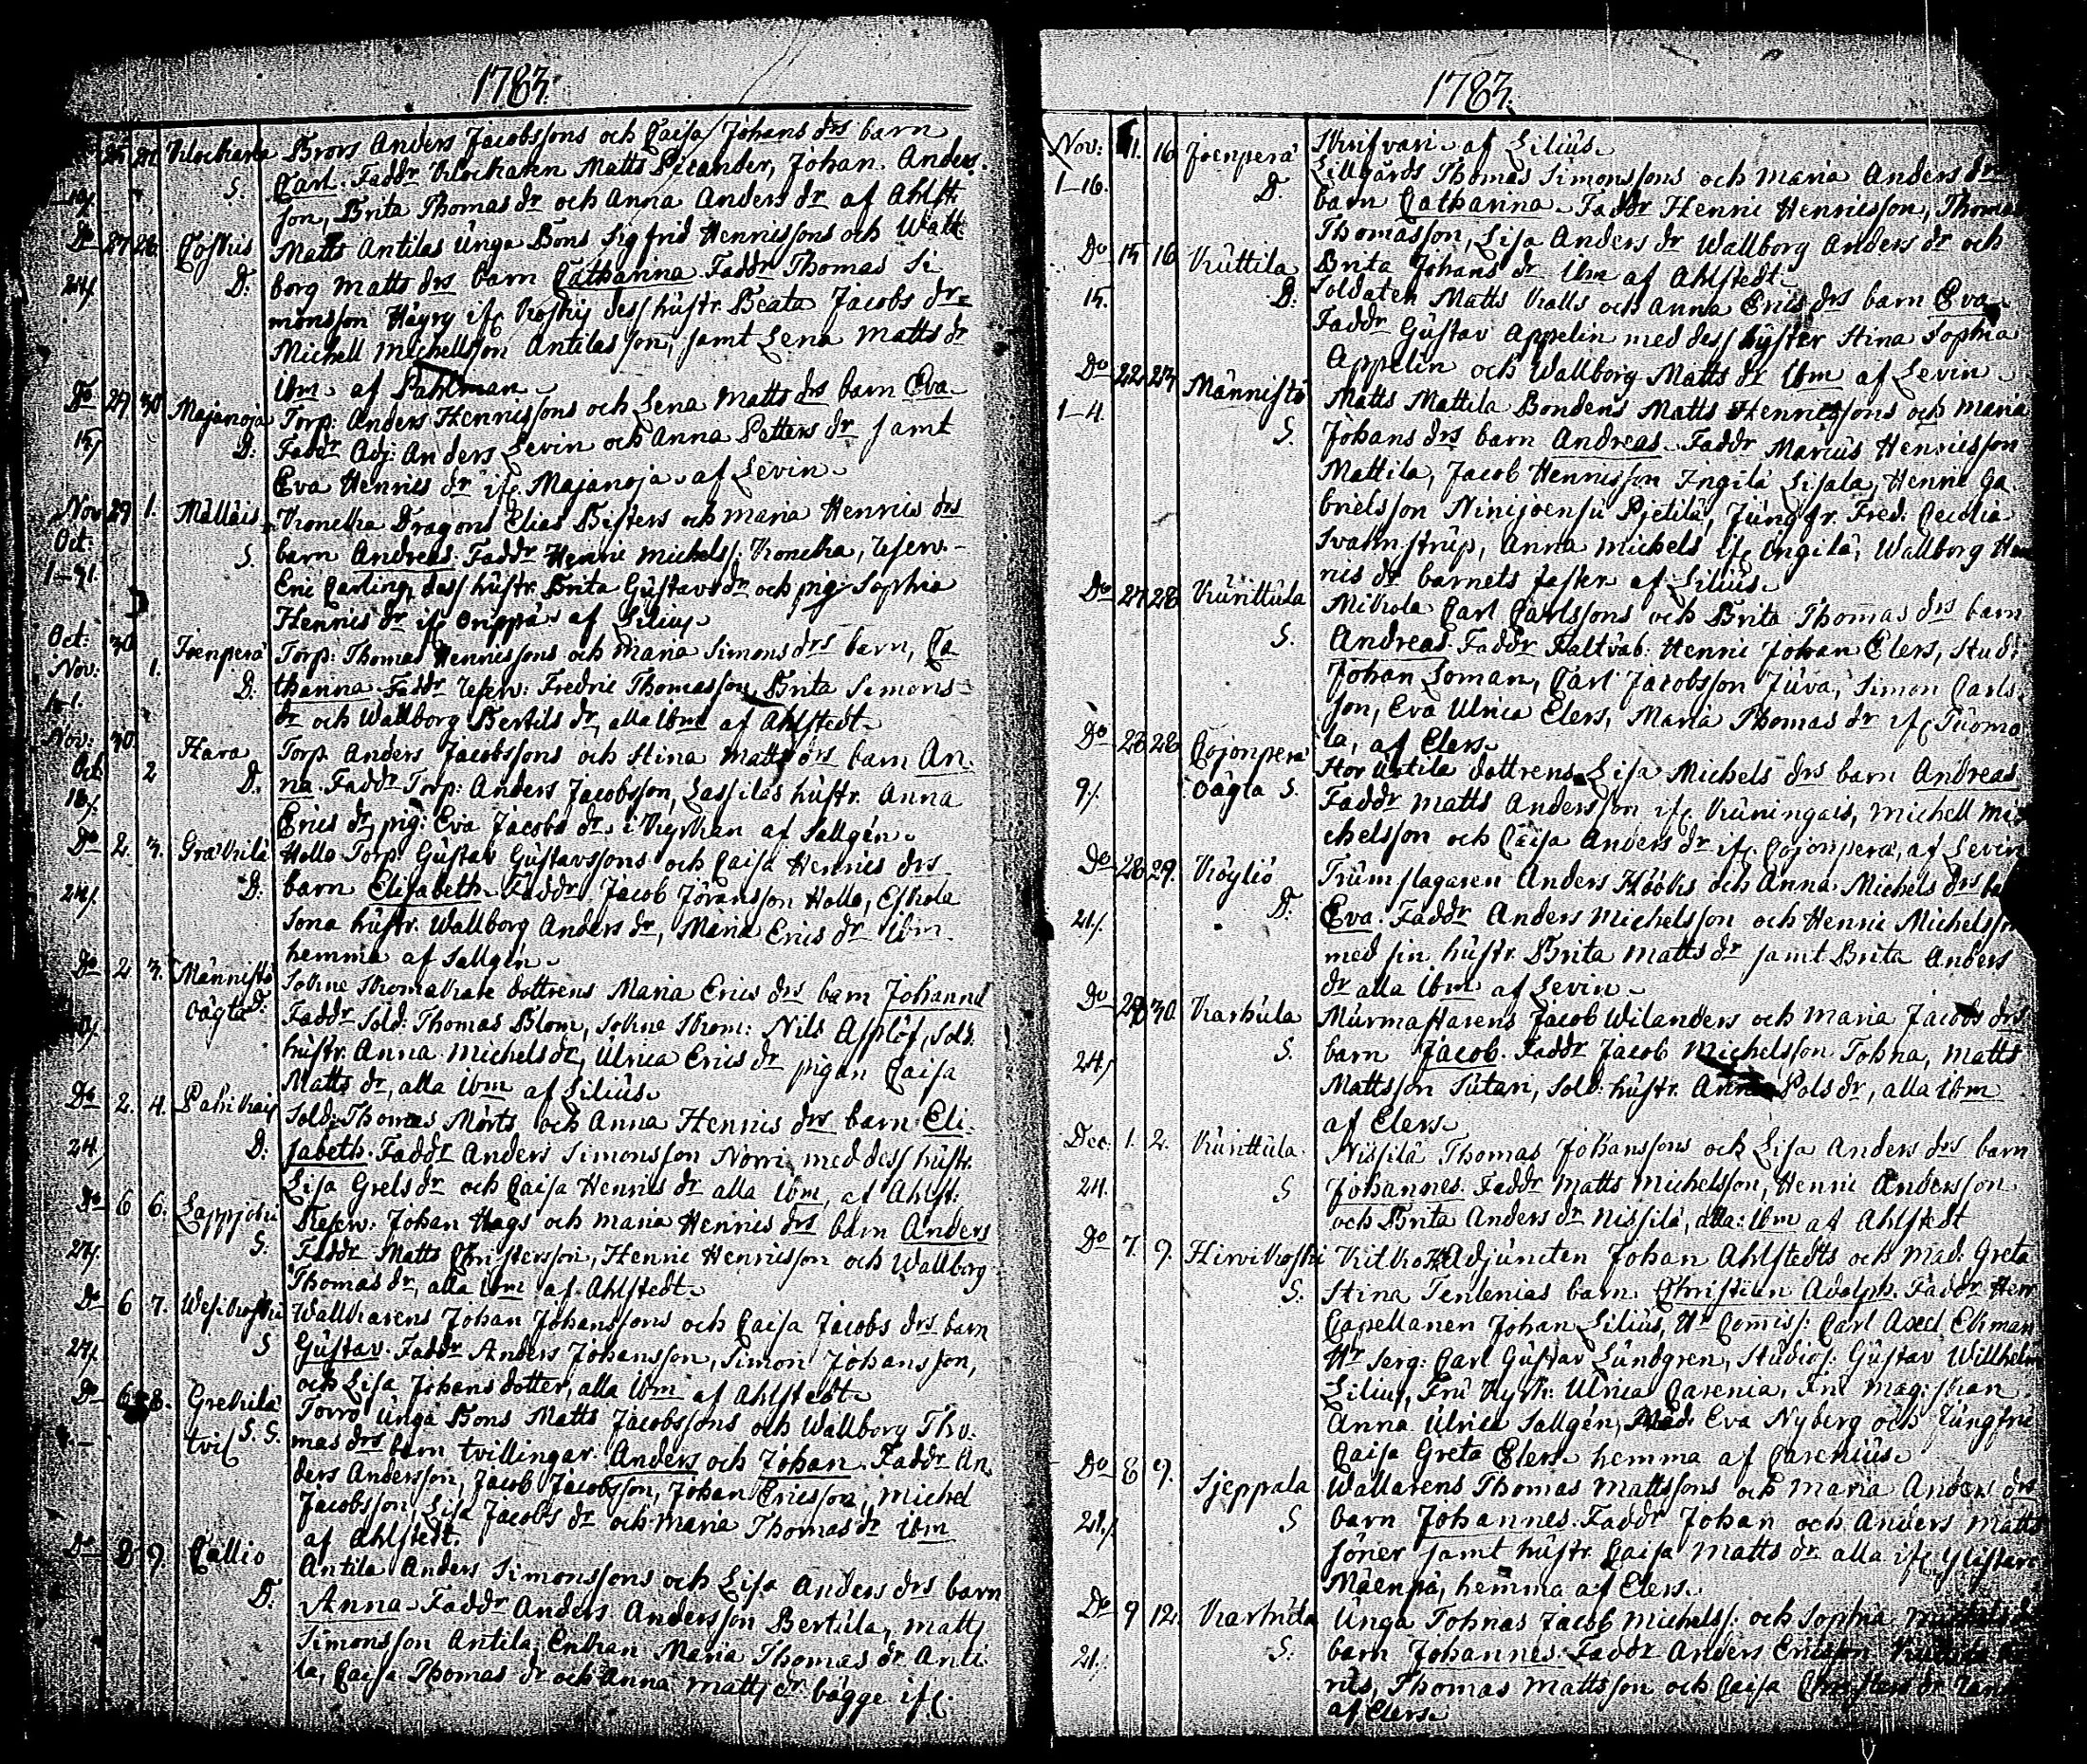 1783.
25 27 Klockarla Brors Anders Jacobssons och Caisa Johans drs barn
S. Carl. Faddr Klockaren Matts Picander, Johan Anders-
son, Brita Thomas dr och Anna Anders dr af Ahlst:
Do 27 28 Coskis Matts Antilas Unga Bons Sigfrid Henricssons och Wall
D. borg Matts drs barn Catharina Faddr Thomas Si
monsson Häyry if. Koskij dess hustr. Beata Jacobs dr
Michell Michellsson Antilas son, samt Lena Matts dr
ibm af Pahlman
Do 29 30 Majanoja Torp: Anders Henricssons och Lena Matts drs barn Eva
D. Faddr Adj: Anders Levin och Anna Petters dr samt
Eva Henrics dr if. Majanoja af Levin
Nov 29 1. Mälläis Dragons Elias och Maria Henrics drs
Oct: S. barn Andreas Faddr Henric Michels: Reserv.
Eric Carling, dess hustr. Brita Gustavs dr och pig Sophia
Henrics dr if. af Lilius
Oct: 30 Joenperä Torp: Thomas Henricssons och Maria Simons drs barn, Ca
Nov: 1. D. tharina Faddr Reserv: Fredric Thomasson, Brita Simons
dr och Wallborg Bertils dr, alla ibm af Ahlstedt
Nov: 30 Hara Torp. Anders Jacobssons och Stina Matts drs barn An.
Oct 2 D. na Faddr Torp: Anders Jacobsson, Lassilas hustr. Anna
Erics dr, pig: Eva Jacobs dr i Kyrkan af Sallgén
Do 2. 3. Gräkilä Hollo Torp: Gustav Gustavssons och Caisa Henrics drs
24/. D. barn Elisabeth Faddr Jacob Jöransson Hollo, Eskola
Sona hustr. Wallborg Anders dr, Maria Erics dr ibm
hemma af Sallgén
Do 2 3. Männistö Sokne dottrens Maria Erics drs barn Johanne
oägta Faddr Sold: Thomas Blom, Sokne Skom: Nils Applöf, Sold.
hustr. Anna Michels dr, Ulrica Erics dr pigan Caisa
Matts dr, alla ibm af Lilius
Do 2. 4. Sold: Thomas Mörts och Anna Henrics drs barn Eli.
24/ D: sabeth. Faddr Anders Simonsson Norri med dess hustr.
Lisa Grels dr och Caisa Henrics dr alla ibm, af Ahlst:
Do 6 6. Lappjoki Reserv: Johan Hags och Maria Henrics drs barn Anders
S. Faddr Matts Christersson, Henric Henricsson och Wallborg
Thomas dr, alla ibm af Ahlstedt
Do 6 7. Wesikoski Wallkarens Johan Johanssons och Caisa Jacobs drs barn
24/. S Gustav. Faddr Anders Johansson, Simon Johansson,
och Lisa Johans dotter, alla ibm af Ahlstedt
Do 6 8. Grekilä Torro Unga Bons Matts Jacobssons och Wallborg Tho.
tvil S. S. mas drs barn tvillingar Anders och Johan. Faddr An.
ders Andersson, Jacob Jacobsson, Johan Ericsson, Michel
Jacobsson, Lisa Jacobs dr och Maria Thomas dr ibm
af Ahlstedt.
Do 8 9. Callio Antila Anders Simonssons och Lisa Anders drs barn
D. Anna Faddr Anders Andersson Bertula, Matts
Simonsson Antila, Enkan Maria Thomas dr Anti
la, Caisa Thomas dr och Anna Matts dr bägge if.
1783.
Nov: 11. 16 Joenperä af Lilius
1-16. D. Lillgårds Thomas Simonssons och Maria Anders dr
barn Catharina Faddr Henric Henricsson, Thomas
Thomasson, Lisa Anders dr Wallborg Anders dr och
Do 15 16 Kuttila Brita Johans dr ibm af Ahlstedt
15. D. Soldaten Matts Kalls och Anna Erics drs barn Eva
Faddr Gustav Appelin med dess syster Stina Sophia
Appelin och Wallborg Matts dr ibm af Levin
Do 22 23 Männistö Matts Mattila Bondens Matts Henricssons och Maria
1-4. S. Johans drs barn Andreas Faddr Marcus Henricsson
Mattila, Jacob Henricsson Ingilä Lisala, Henric Ga
brielsson Ninijoensu Pjetilä, Jungfr. Fred: Cecilia
Svahnström, Anna Michels if. Ingilä, Wallborg Hen
rics dr barnets faster af Lilius
Do 27 28 Kurittula Mikola Carl Carlssons och Brita Thomas drs barn
S. Andreas Faddr Faltväb: Henric Johan Elers, Stud:
Johan Loman, Carl Jacobsson Juva, Simon Carls.
son, Eva Ulrica Elers, Maria Thomas dr if. Tuomo
la, af Elers
Do 28 28 Cojonperä Stor dottrens Lisa Michels drs barn Andreas
9/. oägta S. Faddr Matts Andersson if. Kuningais, Michell Mi
chelsson och Caisa Anders dr if. Cojonperä, af Levin
Do 28 29. Köyliö Trumslagaren Anders Hööks och Anna Michels drs ba
21/. D: Eva. Faddr Anders Michelsson och Henric Michelsson
med sin hustr. Brita Matts dr samt Brita Anders
dr alla ibm af Levin
Do 29 30 Karhula Murmästarens Jacob Wilanders och Maria Jacobs drs
24/ S. barn Jacob. Faddr Jacob Michelsson Tohna, Matts
Mattsson Sutari, Sold: hustr. Anna Pols dr, alla ibm
af Elers
Dec: 1. 2. Kurittula Nissilä Thomas Johanssons och Lisa Anders drs barn
24. S Johannes. Faddr Matts Michelsson, Henric Andersson
och Brita Anders dr Nissilä, alla ibm af Ahlstedt
Do 7. 9. Hirvikoski Adjuncten Johan Ahlstedts och Mad: Greta
S. Stina barn Christian Adolph. Faddr Herr
Capellanen Johan Lilius, Hr Comiss: Carl Axel Ekman
Hr Sarg: Carl Gustav Lundgren, Studios: Gustav Willhelm
Lilius, Fru Kyrk: Ulrica Carenia, Fru Mag:skan
Anna Ulrica Sallgén, Mad: Eva Nyberg och Jungfru
Caisa Greta Elers hemma af Carenius
Do 8 9. Sjeppala Wallarens Thomas Mattssons och Maria Anders drs
21./. S barn Johannes. Faddr Johan och Anders Matts
söner samt hustr. Caisa Matts dr alla if. Ylistaro
Mäenpä, hemma af Elers
Do 9 12. Karhula Unga Tohnas Jacob Michels: och Sophia
21. S. barn Johannes. Faddr Anders Ericsson
rils, Thomas Mattsson och Caisa Christers dr
af Elers